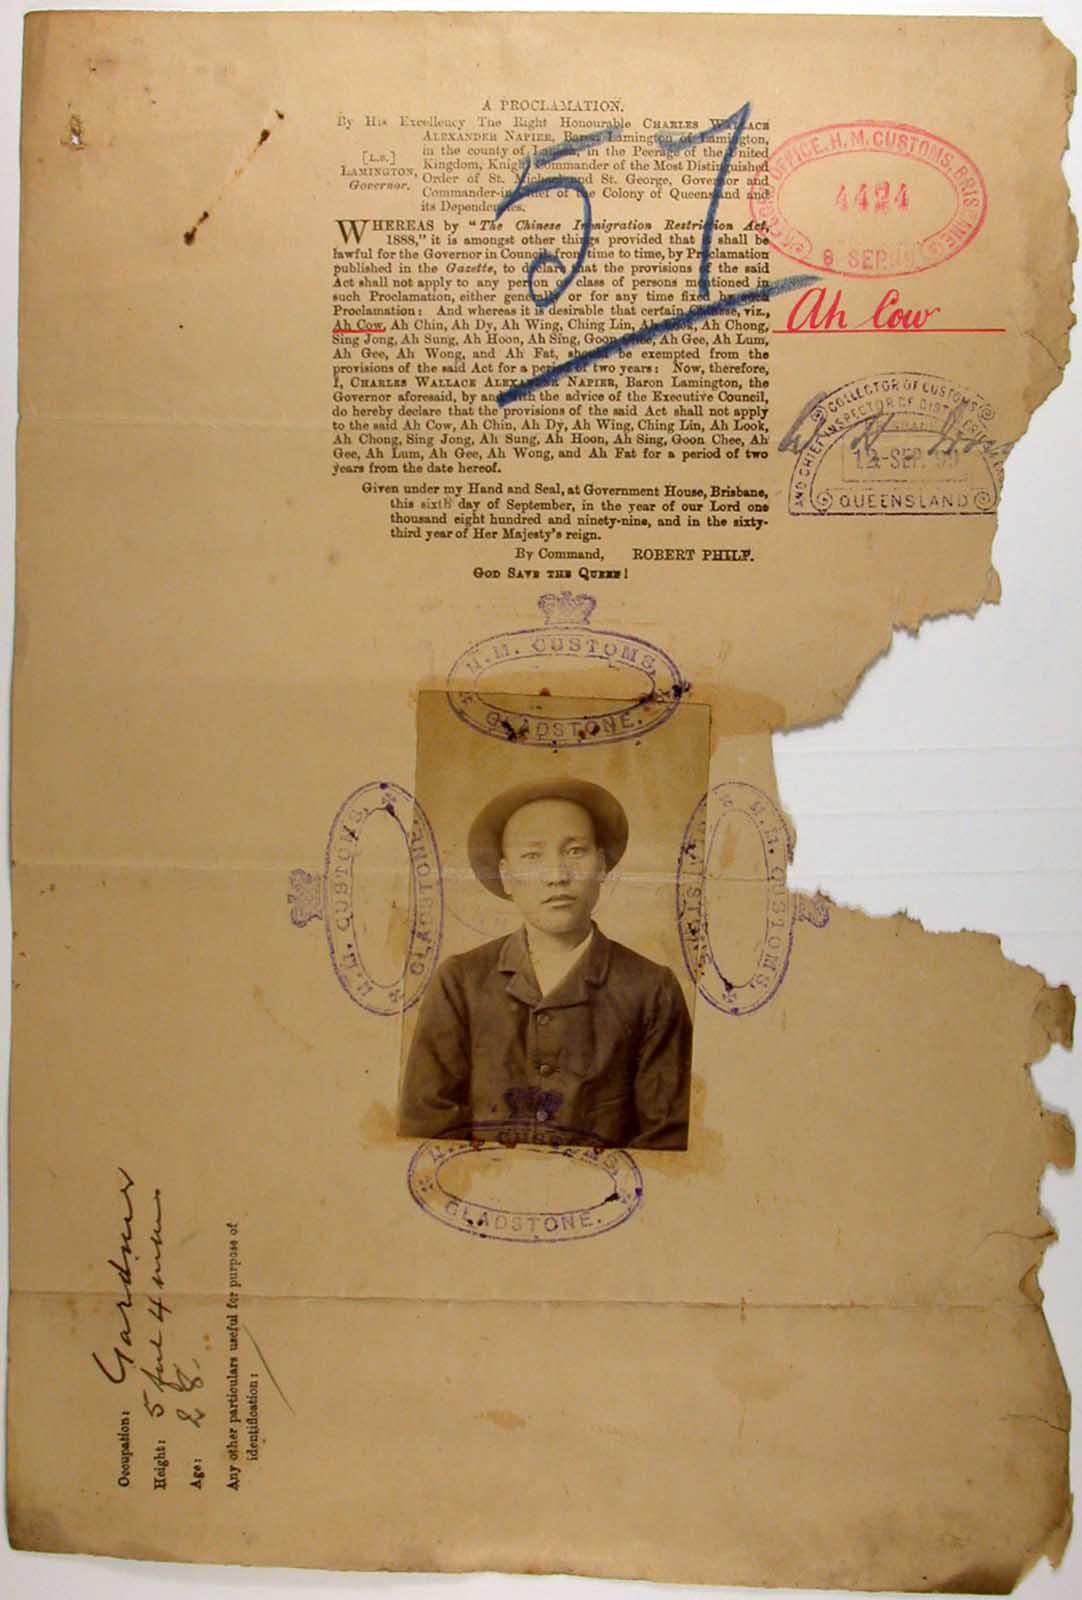 A PROCLAMATION.
By His Excellency The Right Honourable CHARLES WALLACE
ALEXANDER NAPIER, Baron Lamington of Lamington,
in the county of Lanark, in the Peerage of the United
[L.S.] Kingdom, Knight Commander of the Most Distinguished
LAMINGTON, Order of St. Michael and St. George, Governor and
Governor. Commander-in-Chief of the Colony of Queensland and
its Dependencies.
WHEREAS by "The Chinese Immigration Restriction Act,
1888," it is amongst other things provided that it shall be
lawful for the Governor in Council, from time to time, by Proclamation
published in the Gazette, to declare that the provisions of the said
Act shall not apply to any person or class of persons mentioned in
such Proclamation, either generally or for any time fixed by such
Proclamation: And whereas it is desirable that certain Chinese, viz.,
Ah Cow, Ah Chin, Ah Dy, Ah Wing, Ching Lin, Ah Look, Ah Chong,
Sing Jong, Ah Sung, Ah Hoon, Ah Sing, Goon Chee, Ah Gee, Ah Lum,
Ah Gee, Ah Wong, and Ah Fat, should be exempted from the
provisions of the said Act for a period of two years: Now, therefore,
I, CHARLES WALLACE ALEXANDER NAPIER, Baron Lamington, the
Governor aforesaid, by and with the advice of the Executive Council,
do hereby declare that the provisions of the said Act shall not apply
to the said Ah Cow, Ah Chin, Ah Dy, Ah Wing, Ching Lin, Ah Look,
Ah Chong, Sing Jong, Ah Sung, Ah Hoon, Ah Sing, Goon Chee, Ah
Gee, Ah Lum, Ah Gee, Ah Wong, and Ah Fat for a period of two
years from the date hereof.
Given under my Hand and Seal, at Government House, Brisbane,
this sixth day of September, in the year of our Lord one
thousand eight hundred and ninety-nine, and in the sixty-
third year of Her Majesty's reign.
By Command, ROBERT PHILP.
GOD SAVE THE QUEEN!
57
OFFICE, H.M. CUSTOMS, BRISBANE
4424
8 SEP. 99
Ah Cow
COLLECTOR OF CUSTOMS
AND CHIEF INSPECTOR OF DISTILLERIES
12 SEP. 99
QUEENSLAND
H.M. CUSTOMS,
GLADSTONE.
H.M. CUSTOMS,
GLADSTONE.
H.M. CUSTOMS,
GLADSTONE.
H.M. CUSTOMS,
GLADSTONE.
Occupation: Gardner
Height: 5 4
Age: 28.
Any other particulars useful for purpose of
identification: